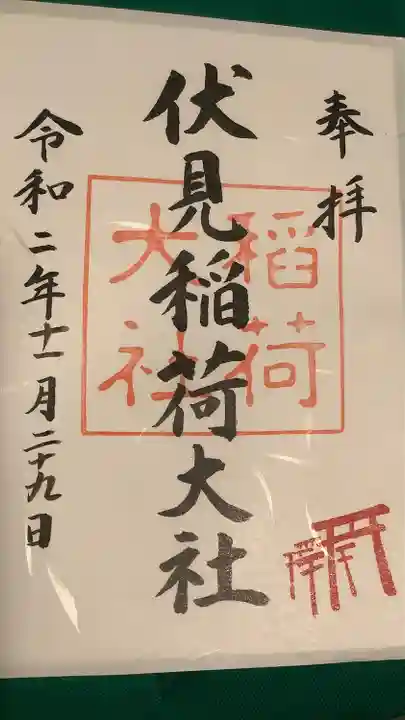 奉拝
伏見稲荷大社
稲荷
大社
令和二年十一月二十九日